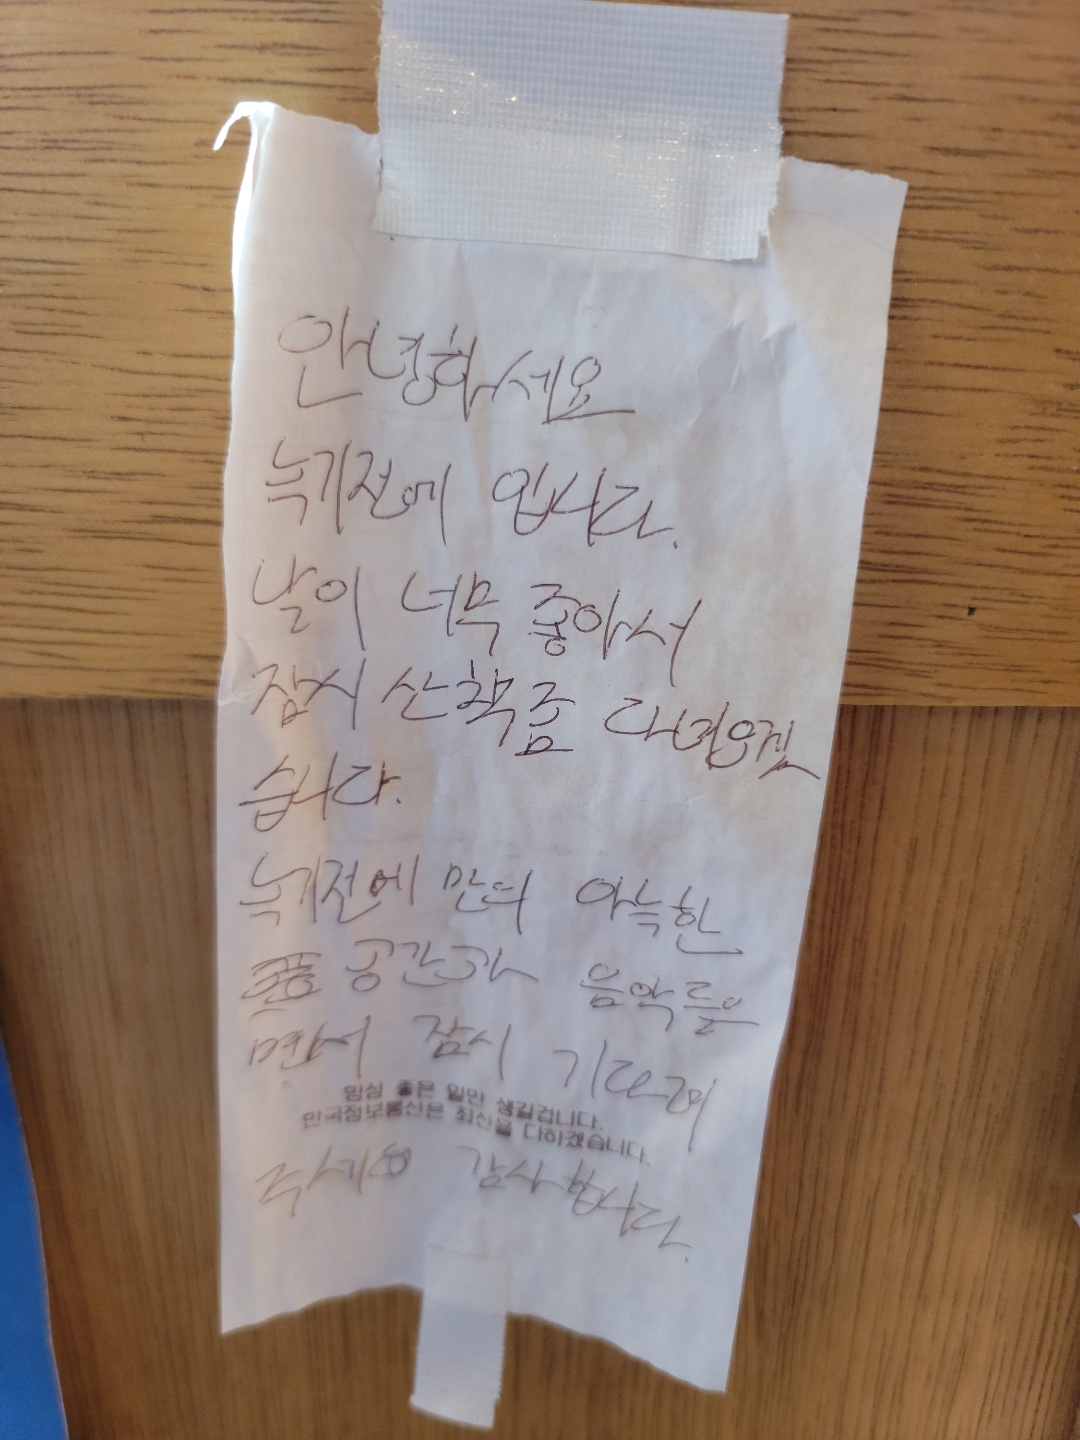 안녕하세요
녹기전에 입니다.
날이 너무 좋아서
잠시 산책좀 다녀오겠
습니다.
녹기전에 만의 아늑한
공간과 음악를
면서 잠시 기다려
항상 좋은 일만 생길겁니다.
한국정보통신은 최선을 다하겠습니다.
주세요 감사합니다.